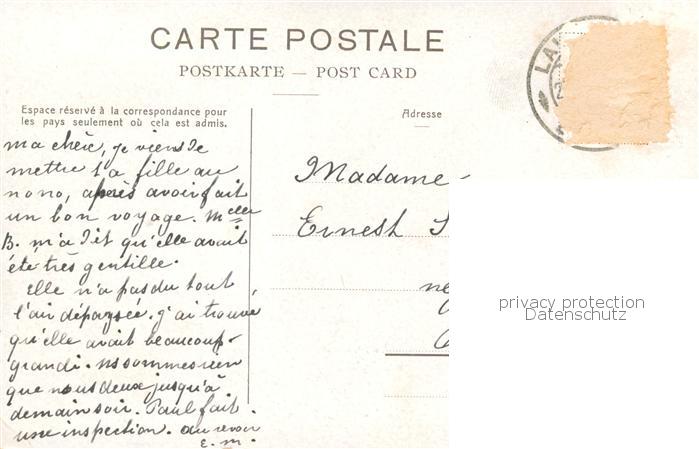 CARTE POSTALE
POSTKARTE — POST CARD
Espace réservé à la correspondance pour
les pays seulement où cela est admis.
Adresse
LA
ma chère, je viens de
mettre ta fille au
nono, après avoir fait
un bon voyage. Melle
B. m'a dit qu'elle avait
été très gentille.
Elle n'a pas du tout
l'air dépaysée. j'ai trouvé
qu'elle avait beaucoup
grandi. ns sommes rien
que nous deux jusqu'à
demain soir. Paul fait
une inspection. au revoir
E. M.
Madame
Ernest S
privacy protection
Datenschutz